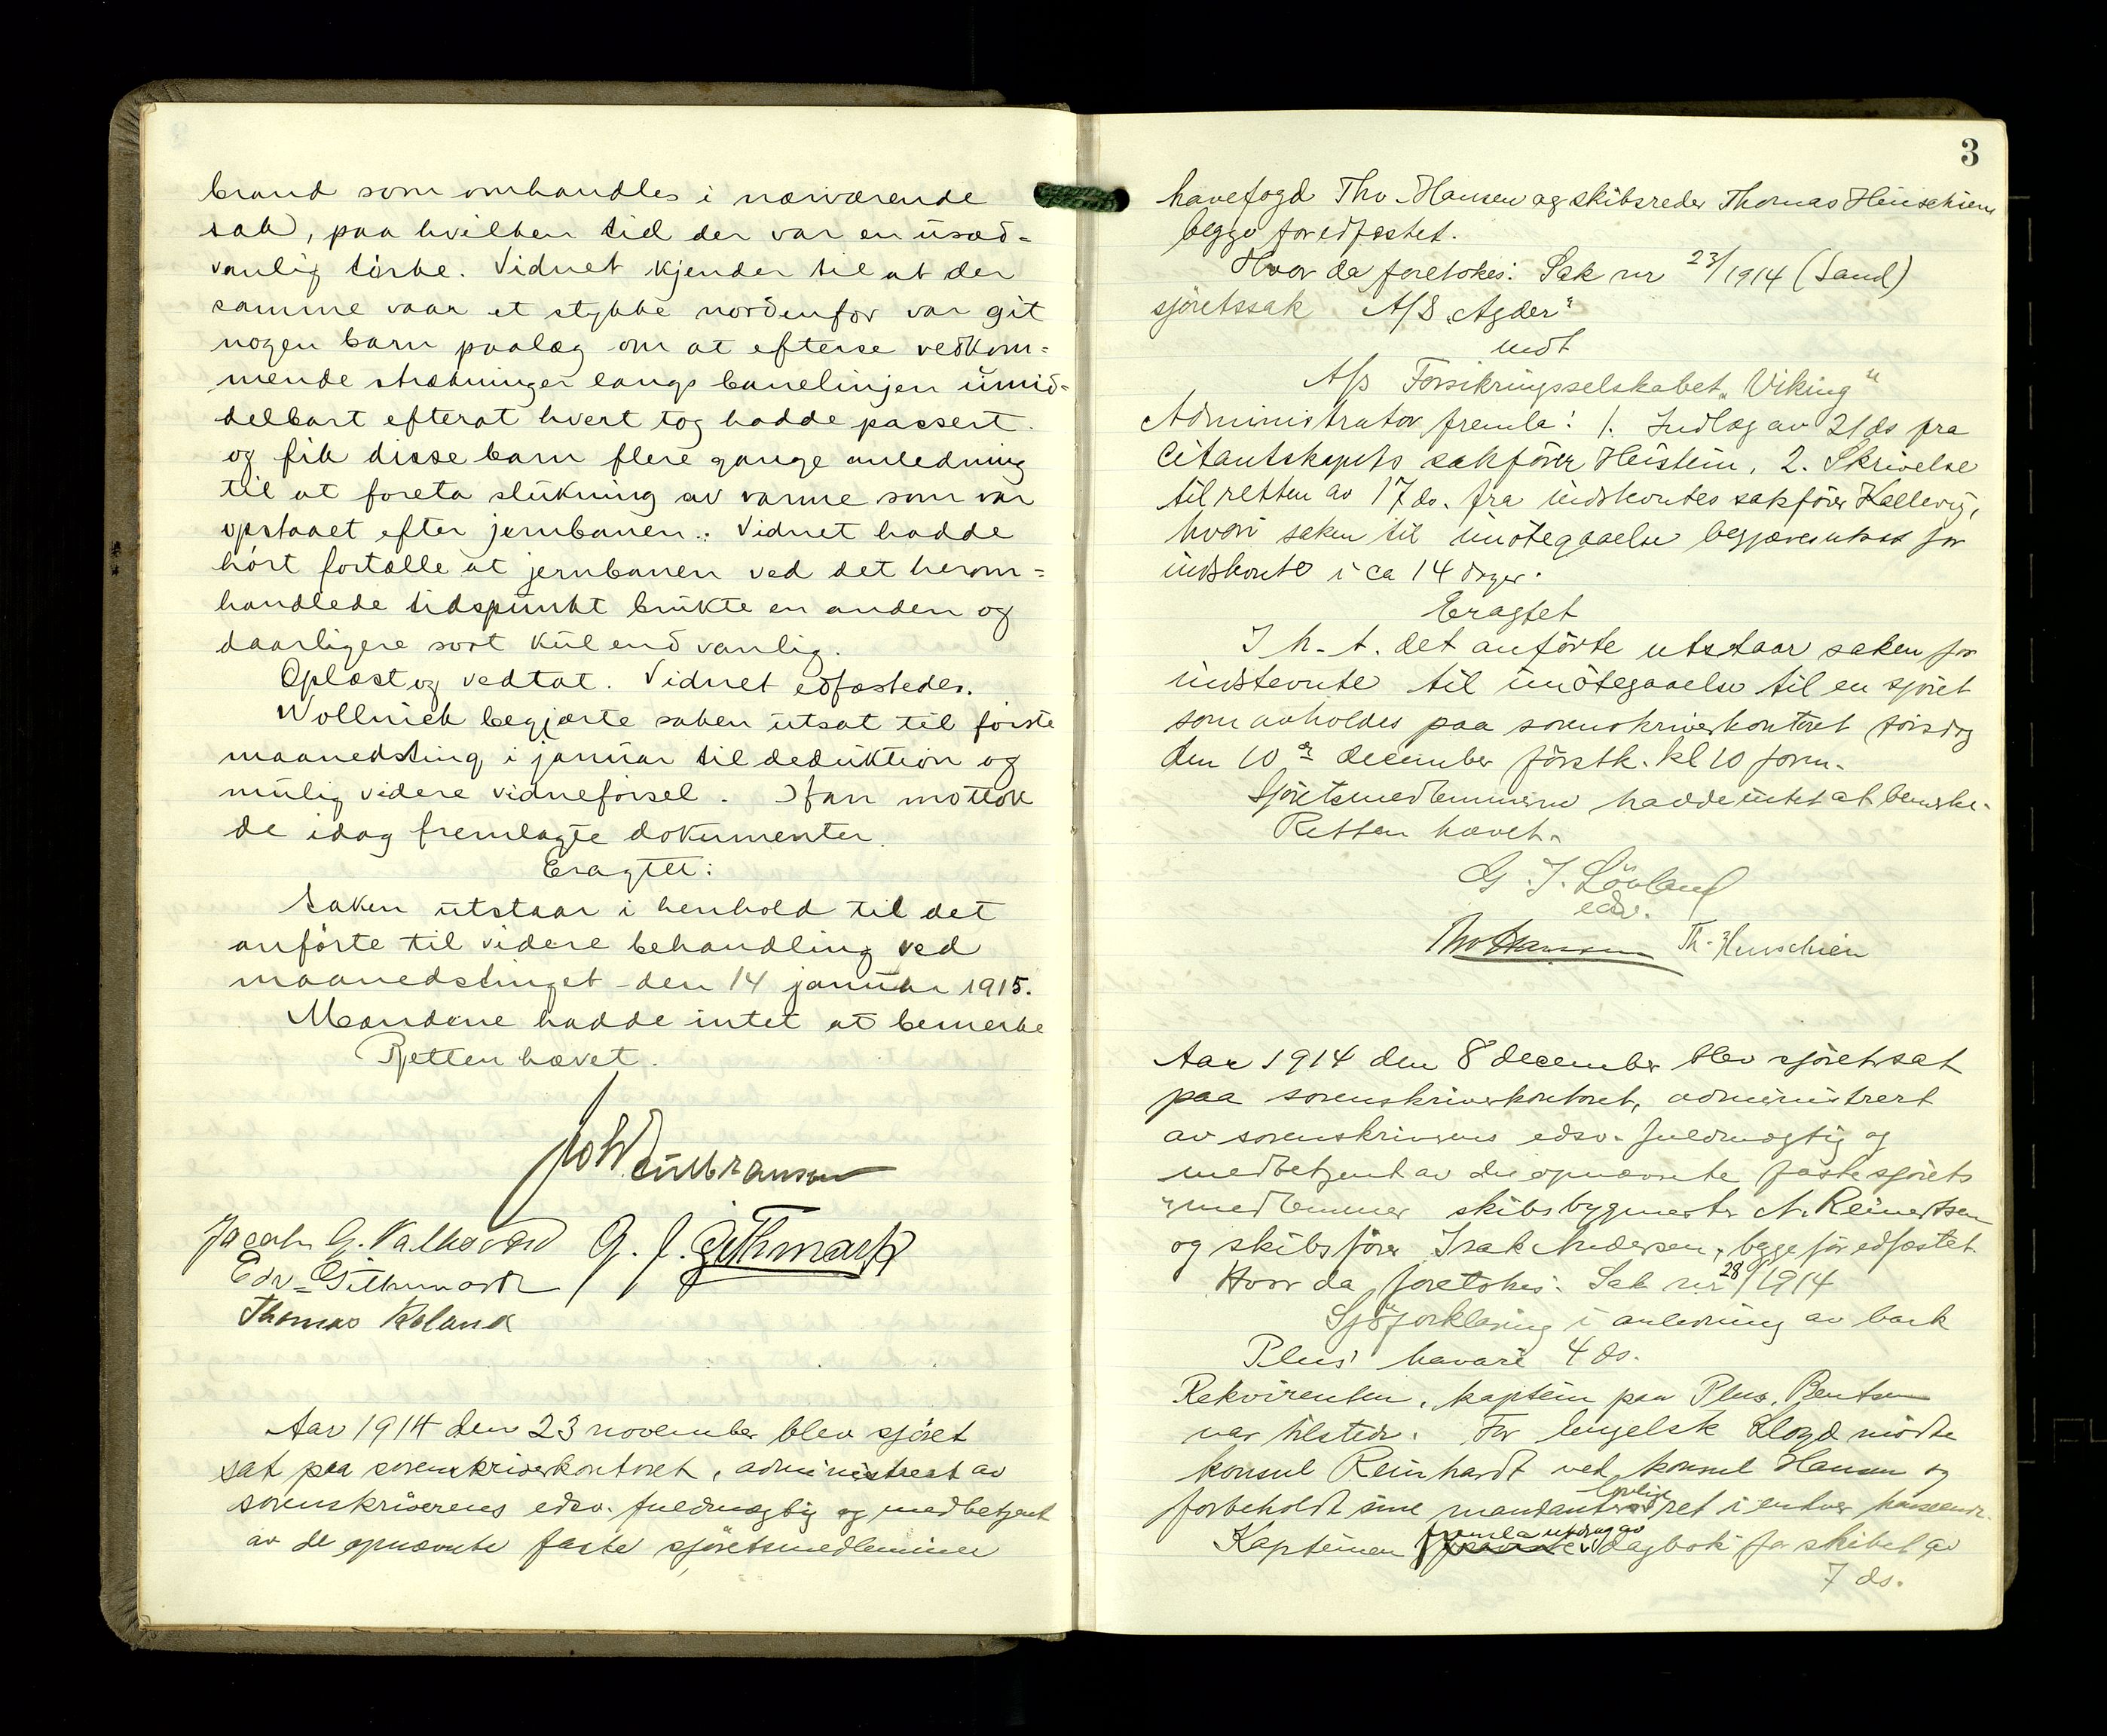 brand som omhandles i nærværende
sak, paa hvilken tid der var en usæd-
vanlig tørke. Vidnet kjender til at der
samme vaar et stykke nordenfor var git
nogen barn paalæg om at efterse vedkom-
mende strækninger langs banelinjen umid-
delbart efterat hvert tog hadde passert
og fik disse barn flere gange anledning
til at foreta slukning av varme som var
opstaaet efter jernbanen. Vidnet hadde
hört fortælle at jernbanen ved det herom-
handlede tidspunkt brukte en anden og
daarligere sort kul end vanlig.
Oplæst og vedtat. Vidnet edfæstedes.
Wollnick begjærte saken utsat til förste
maanedsting i januar til deduktion og
mulig videre vidneförsel. Han mottok
de idag fremlagte dokumenter.
Eragtet:
Saken utstaar i henhold til det
anförte til videre behandling ved
maanedstinget den 14 januar 1915.
Mændene hadde intet at bemerke
Retten hævet.
Jacob G. Valhovd G. J. Githmark
Edv. Githmark
Thomas Røland
Aar 1914 den 23 november blev sjöret
sat paa sorenskriverkontoret, administrert av
sorenskriverens edsv. fuldmægtig og medbetjent
av de opnævnte faste sjöretsmedlemmer
3
havnefogd Thv. Hansen og skibsreder Thomas Heuschien
begge for edfæstet.
Hvor da foretokes: Sak nr 23/1914 (Sand)
sjöretssak A/S "Agder"
mot
A/S Forsikringsselskabet "Viking"
Administrator fremla: 1. Indlæg av 21 ds fra
Citantskapets sakförer Heistein, 2. Skrivelse
til retten av 17 ds. fra indstevntes sakförer Kallevig,
hvori saken til imötegaaelse begjæres utsat for
indstevnte i ca 14 dager.
Eragtet
I h. t. det anförte utstaar saken for
indstevnte til imötegaaelse til en sjöret
som avholdes paa sorenskriverkontoret torsdag
den 10de december förstk. kl 10 form.
Sjöretsmedlemmerne hadde intet at bemerke.
Retten hævet.
G. J. Lövland
edsv.
Thv Hansen Th. Heuschien
Aar 1914 den 8 december blev sjöret sat
paa sorenskriverkontoret, administrert
av sorenskriverens edsv. fuldmægtig og
medbetjent av de opnævnte faste sjörets
medlemmer skibsbygmester N. Reinertsen
og skibsförer Isak Andersen, begge för edfæstet.
Hvor da foretokes: Sak nr 28/1914
Sjöforklaring i anledning av bark
Plus' havari 4 ds.
Rekvirenten, kaptein paa Plus, Bentsen
var tilstede. For Engelsk Lloyd mödte
konsul Reinhardt ved konsul Hansen og
forbeholdt sine mandanter lovlige ret i enhver henseende.
Kapteinen fremla utdrag av dagbok for skibet av
7 ds.